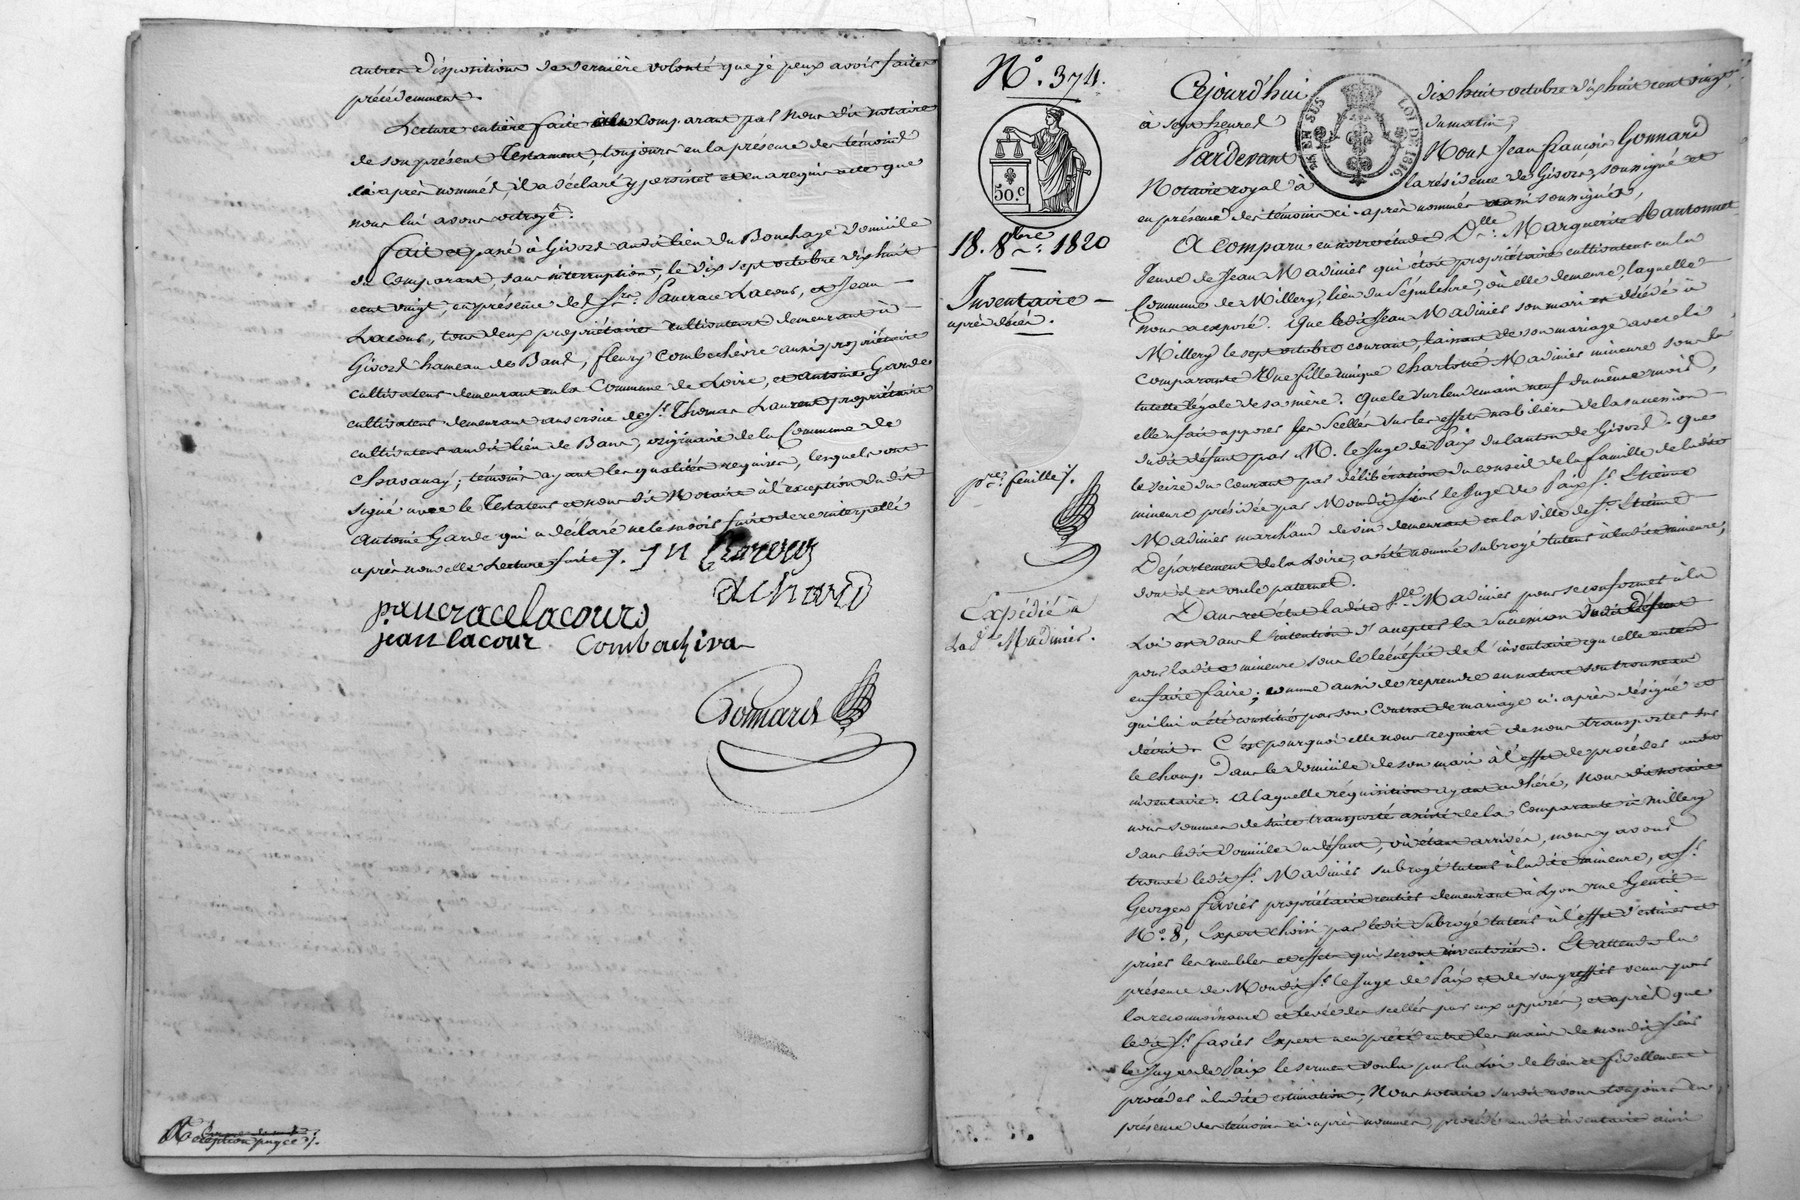 autres dispositions de dernière volonté que je peux avoir faites
précédemment.
Lecture entière faite au comparant par nous dit notaire
de son présent Testament, toujours en la présence des témoins
ci après nommés, il a déclaré y persister et en a requis acte que
nous lui avons octroyé.
fait et passé à Givors audit lieu du Bouchage domicile
du Comparant, sans interruption, le dix sept octobre dix huit
cent vingt, en présence de Srs. Pancrace Lacour, et Jean
Lacour, tous deux propriétaires cultivateurs demeurant à
Givors hameau de Bans, fleury Combachivre aussi propriétaire
cultivateur demeurant en la Commune de Loire, et antoine Garde
cultivateur demeurant au service de Sr. Thomas Laurent propriétaire
cultivateur audit lieu de Bans, originaire de la Commune de
Chavanay; témoins ayant les qualités requises, lesquels ont
signé avec le Testateur et nous dit Notaire à l'exception dudit
Antoine Garde qui a déclaré ne le savoir faire de ce interpellé
après nouvelle Lecture faite
pancrace lacour
jean lacour Combachiva
Gonnard
N°. 374.
50.c
EN SUS
LOI DE 1816
18. 8bre. 1820
Inventaire
après décès.
pre. feuille
Expédié à
lad. Madinier.
Cejourd'hui dix huit octobre dix huit cent vingt
à sept heures du matin,
Pardevant Nous Jean françois Gonnard
Notaire royal à la résidence de Givors, soussigné et
en présence des témoins ci-après nommés aussi soussignés,
A comparu en notre étude Dlle. Marguerite
Veuve de Jean Madinier qui étoit propriétaire cultivateur en la
Commune de Millery, lieu du Sépulchre, où elle demeure, laquelle
nous a exposé. Que ledit Jean Madinier son mari est décédé à
Millery le sept octobre courant, laissant de son mariage avec la
comparante Une fille unique Charlotte Madinier mineure sous la
tutelle légale de sa mère. Que le surlendemain neuf du même mois,
elle a fait apposer les scellés sur les effets mobiliers de la succession
dudit défunt par M. le Juge de Paix du canton de Givors. Que
le seize du courant par délibération du conseil de la famille de ladite
mineure présidée par Mondit Sieur le Juge de Paix Sr. Etienne
Madinier marchand de vin demeurant en la ville de St. Etienne
Département de la Loire, a été nommé subrogé tuteur à ladite mineure,
dont il est oncle paternel.
Dans cet état ladite Ve. Madinier pour se conformer à la
Loi est dans l'intention d'accepter la succession dudit défunt
pour ladite mineure sous le bénéfice de l'inventaire qu'elle entend
en faire faire; comme aussi de reprendre en nature son trousseau
qui lui a été constitué par son Contrat de mariage ci-après désigné et
décrit. C'est pourquoi elle nous requiert de nous transporter sur
le champ dans le domicile de son mari à l'effet de procéder audit
inventaire. A laquelle réquisition ayant adhéré, nous dit notaire
nous sommes de suite transporté assisté de la comparante à Millery
dans ledit domicile du défunt, où étant arrivés, nous y avons
trouvé ledit Sr. Madinier subrogé tuteur à ladite mineure, et Sr.
Georges favier propriétaire rentier demeurant à Lyon rue Gentil
N°. 8, Expert choisi par ledit subrogé tuteur à l'effet d'estimer et
priser les meubles et effets qui seront inventoriés. Et attendu la
présence de Mondit Sr. le Juge de Paix et de son greffier venus pour
la reconnaissance et levée des scellés par eux apposés, et après que
ledit Sr. favier Expert a eu prêté entre les mains de mondit sieur
le Juge de Paix le serment voulu par la Loi de bien et fidellement
procéder à ladite estimation, Nous notaire susdit avons toujours en
présence des témoins ci-après nommés, procédé audit inventaire ainsi